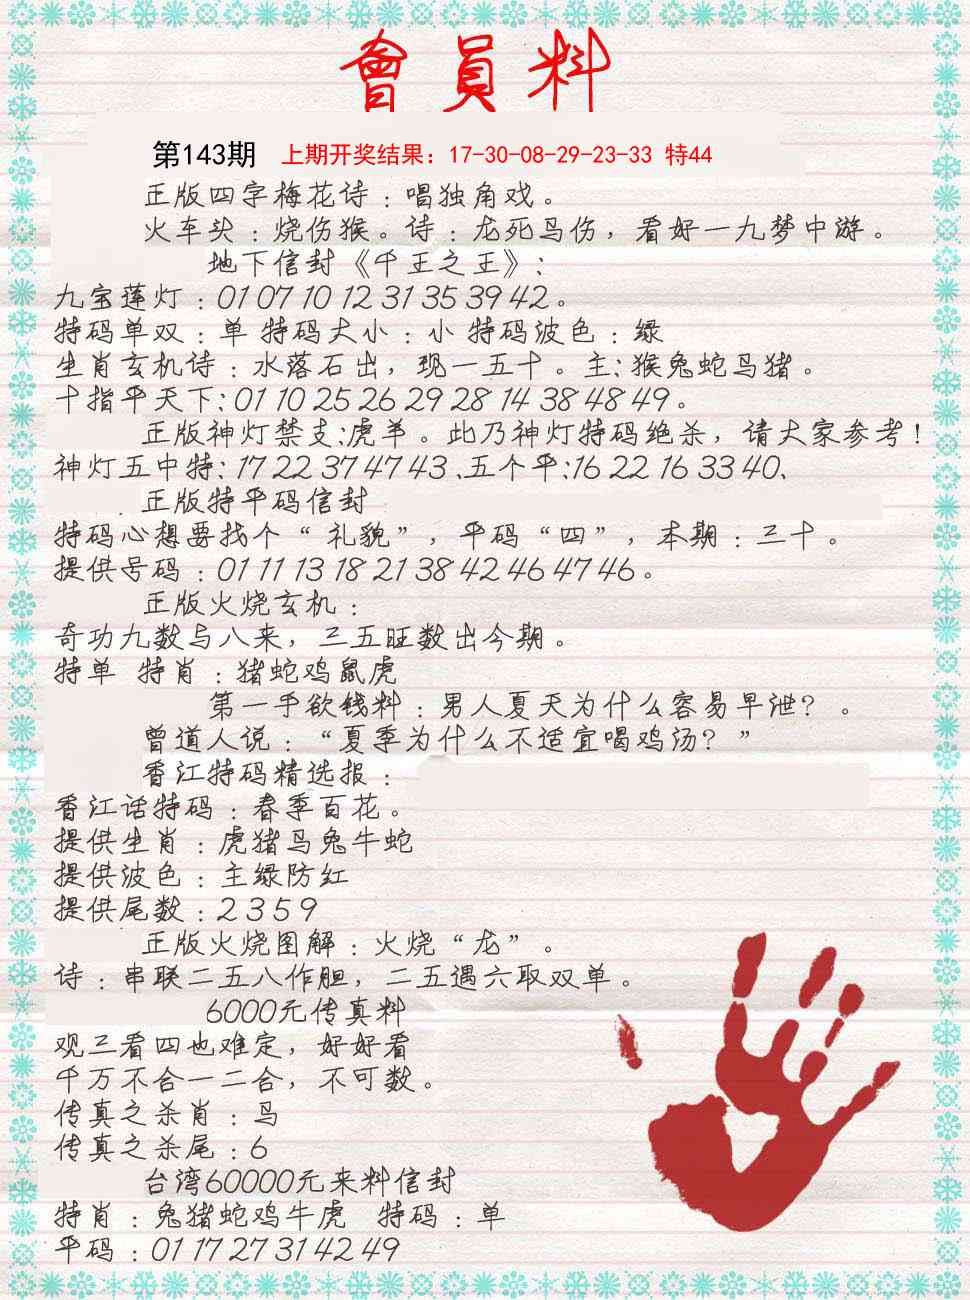 會員料
第143期 上期开奖结果：17-30-08-29-23-33 特44
正版四字梅花诗：唱独角戏。
火车头：烧伤猴。诗：龙死马伤，看好一九梦中游。
地下信封《千王之王》：
九宝莲灯：01 07 10 12 31 35 39 42。
特码单双：单 特码大小：小 特码波色：绿
生肖玄机诗：水落石出，现一五十。主：猴兔蛇马猪。
十指平天下：01 10 25 26 29 28 14 38 48 49。
正版神灯禁支：虎羊。此乃神灯特码绝杀，请大家参考！
神灯五中特：17 22 37 47 43、五个平：16 22 16 33 40、
正版特平码信封
特码心想要找个“礼貌”，平码“四”，本期：三十。
提供号码：01 11 13 18 21 38 42 46 47 46。
正版火烧玄机：
奇功九数与八来，三五旺数出今期。
特单 特肖：猪蛇鸡鼠虎
第一手欲钱料：男人夏天为什么容易早泄？。
曾道人说：“夏季为什么不适宜喝鸡汤？”
香江特码精选报：
香江话特码：春季百花。
提供生肖：虎猪马兔牛蛇
提供波色：主绿防红
提供尾数：2 3 5 9
正版火烧图解：火烧“龙”。
诗：串联二五八作胆，二五遇六取双单。
6000元传真料
观三看四也难定，好好看
千万不合一二合，不可数。
传真之杀肖：马
传真之杀尾：6
台湾60000元来料信封
特肖：兔猪蛇鸡牛虎 特码：单
平码：01 17 27 31 42 49